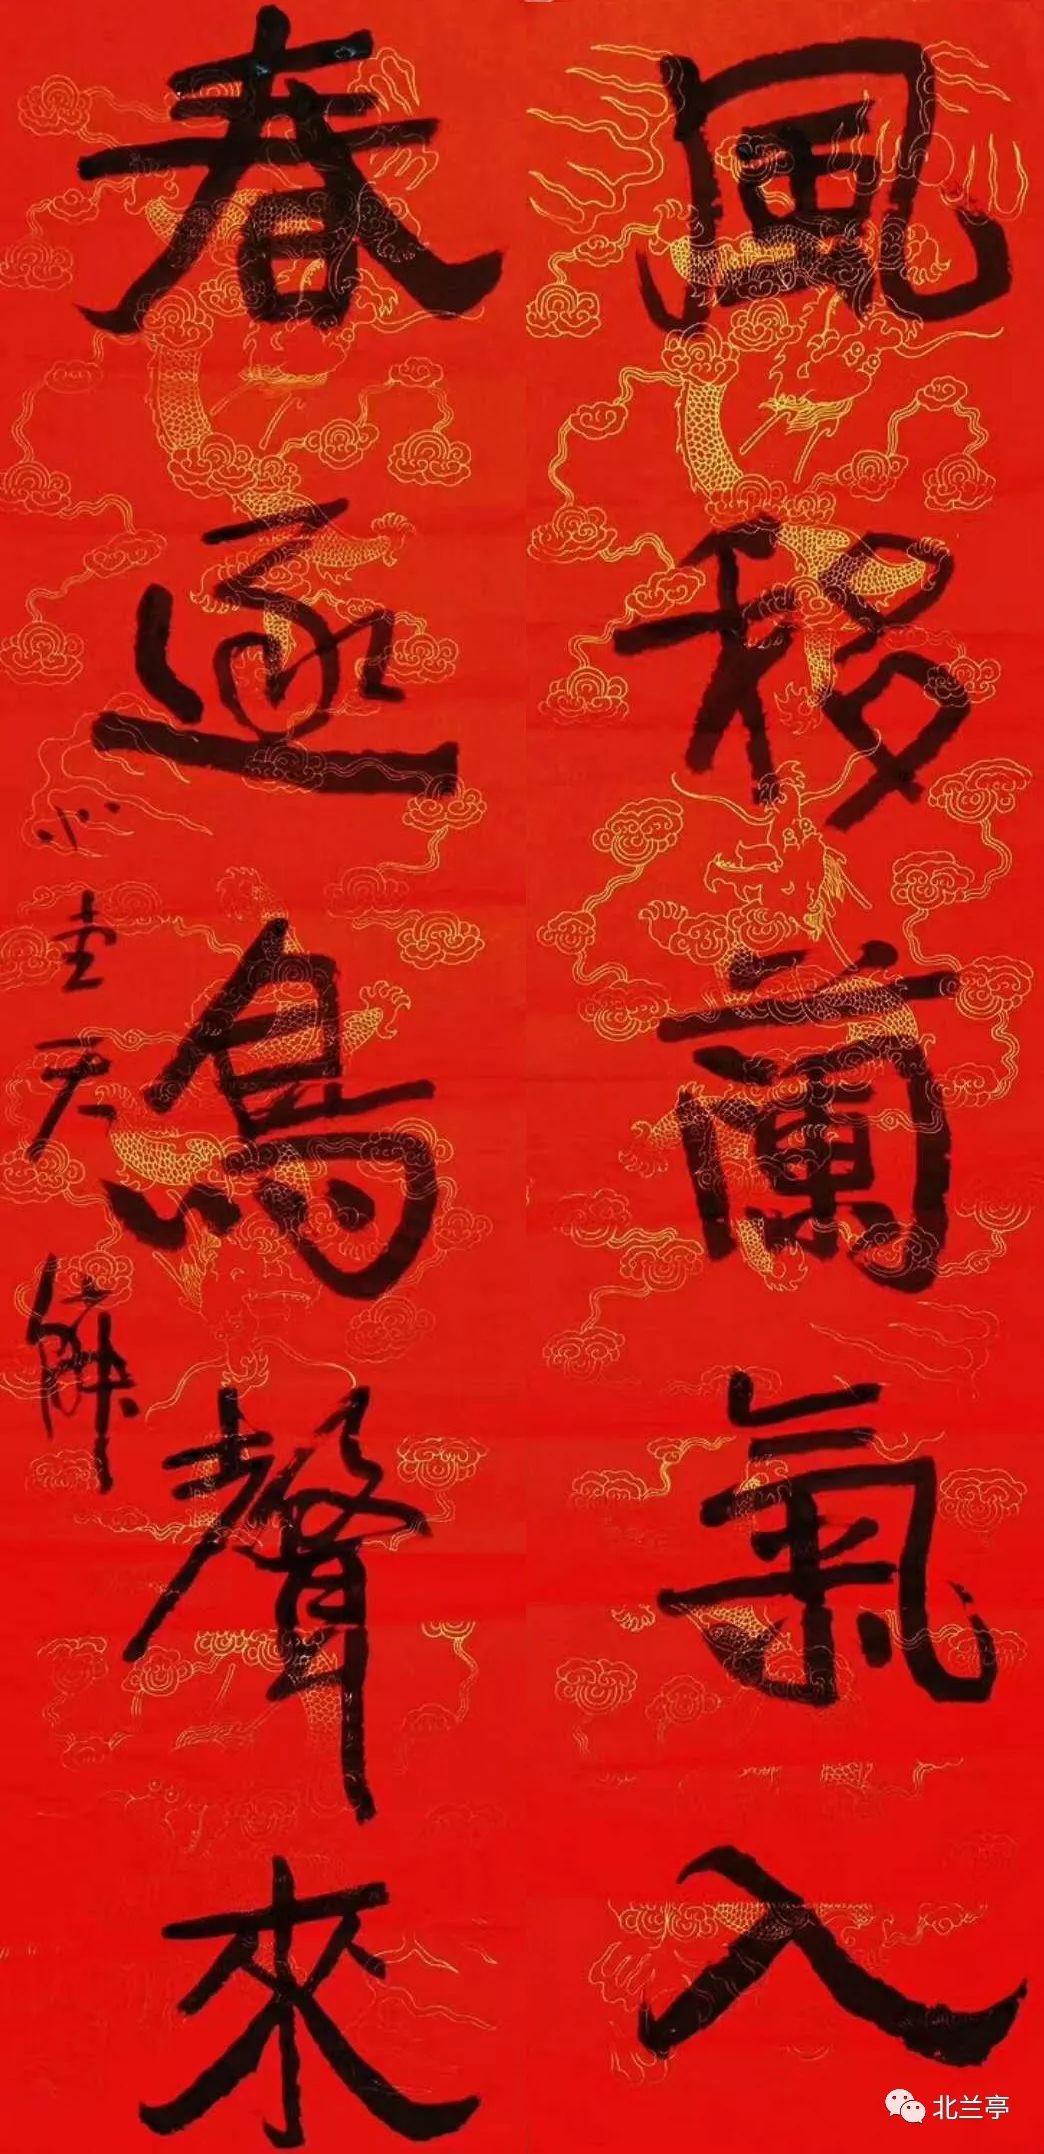 風移蘭氣入
春逐鳥聲來
北兰亭